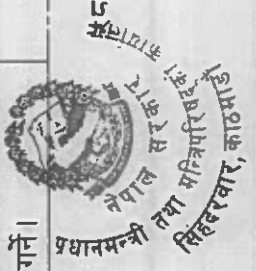 नेपाल सरकार
प्रधानमन्त्री तथा मन्त्रिपरिषद्को
कार्यालय
सिंहदरबार, काठमाडौं